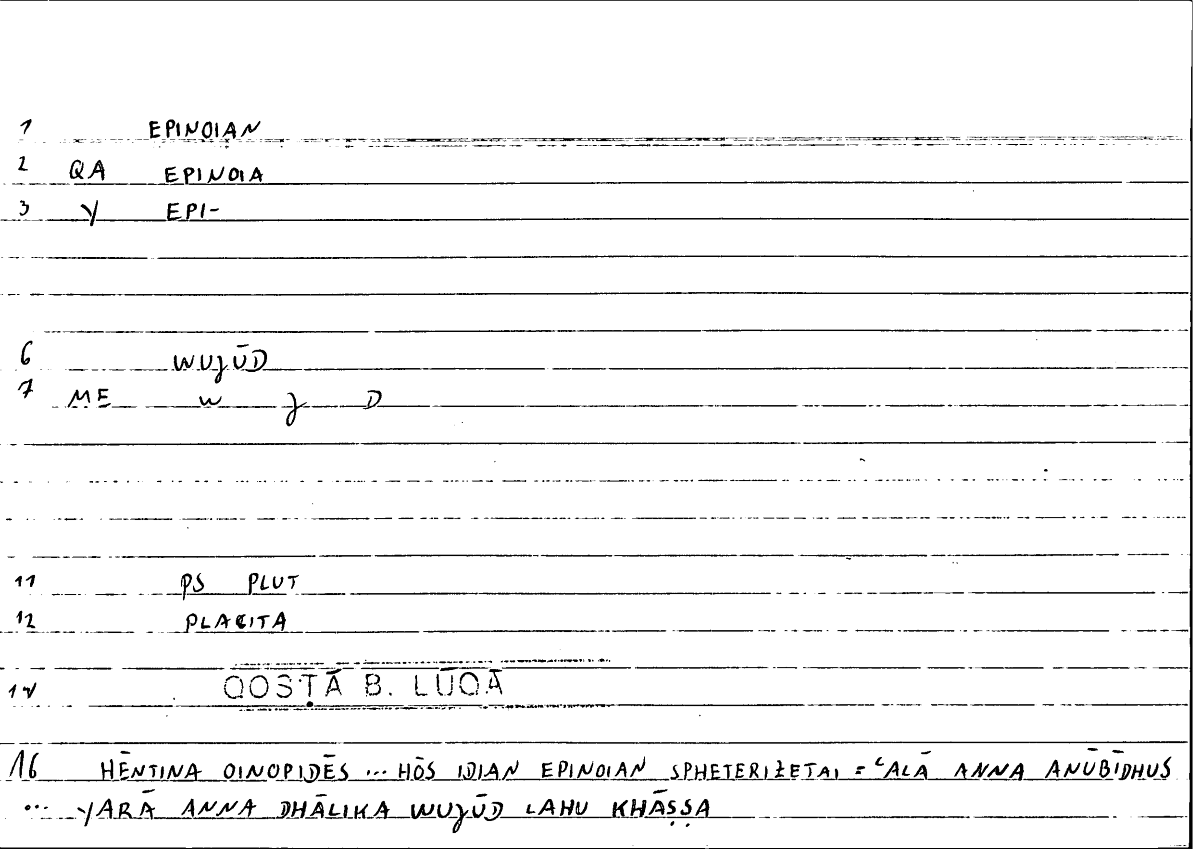 1 EPINOIAN
2 QA EPINOIA
3 Y EPI-
6 WUJŪD
7 ME W J D
11 PS PLUT
12 PLACITA
14 QOSṬĀ B. LŪQĀ
16 HĒNTINA OINOPIDĒS ... HŌS IDIAN EPINOIAN SPHETERIZETAI = ʿALĀ ANNA ANŪBĪDHUS
... YARĀ ANNA DHĀLIKA WUJŪD LAHU KHĀṢṢA